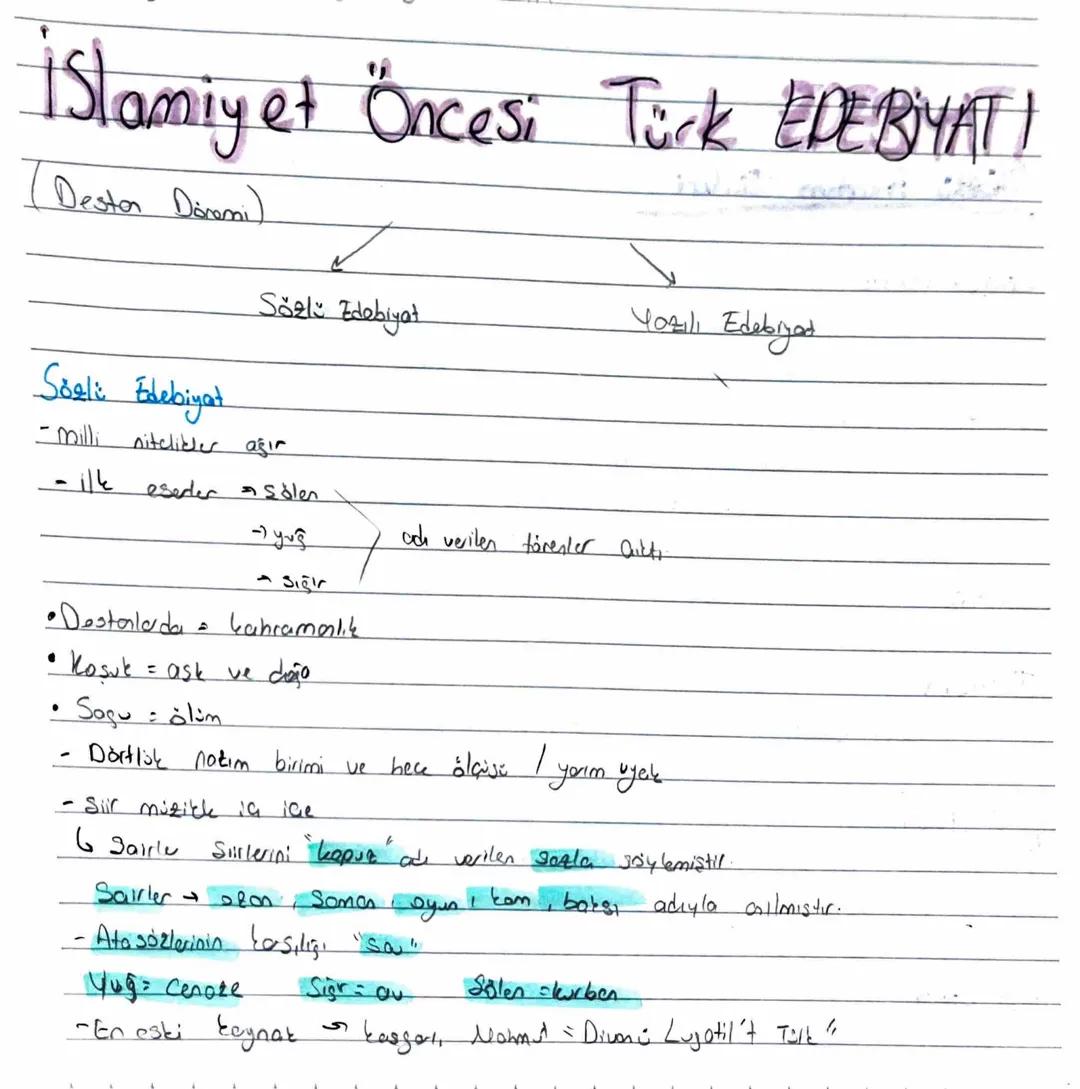 İslamiyet Öncesi Türk EDEBİYATI
(Destan Dönemi)
Sözlü Edebiyat Yazılı Edebiyat
Sözlü Edebiyat
- Milli nitelikler ağır
- ilk eserler → şölen
→ yuğ adı verilen törenler çıktı
→ sığır
• Destanlarda = kahramanlık
• Koşuk = aşk ve doğa
• Sagu = ölüm
- Dörtlük nazım birimi ve hece ölçüsü / yarım uyak
- Şiir müzikle iç içe
↳ Şairler şiirlerini "kopuz" adı verilen sazla söylemiştir.
Şairler → ozan, Şaman, oyun, kam, baksı adıyla anılmıştır.
- Atasözlerinin karşılığı "sav"
Yuğ = Cenaze Sığır = av Şölen = kurban
- En eski kaynak → kaşgarlı Mahmut = Divanü Lugatil't Türk "